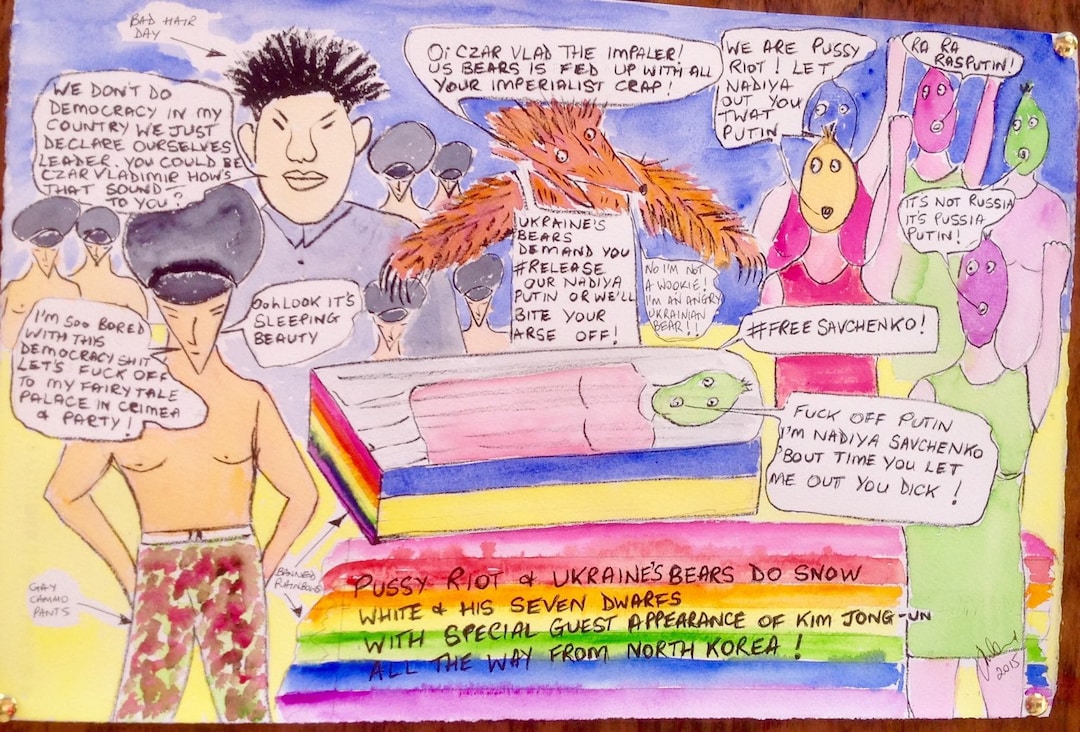 BAD HAIR
DAY
WE DON'T DO
DEMOCRACY IN MY
COUNTRY WE JUST
DECLARE OURSELVES
LEADER. YOU COULD BE
CZAR VLADIMIR HOW'S
THAT SOUND
TO YOU?
Oi CZAR VLAD THE IMPALER!
US BEARS IS FED UP WITH ALL
YOUR IMPERIALIST CRAP!
WE ARE PUSSY
RIOT! LET
NADIYA
OUT YOU
TWAT
PUTIN
RA RA
RASPUTIN!
IT'S NOT RUSSIA
IT'S PUSSIA
PUTIN!
UKRAINE'S
BEARS
DEMAND YOU
#RELEASE
OUR NADIYA
PUTIN OR WE'LL
BITE YOUR
ARSE OFF!
NO I'M NOT
A WOOKIE!
I'M AN ANGRY
UKRAINIAN
BEAR!!
OOH LOOK IT'S
SLEEPING
BEAUTY
I'M SOO BORED
WITH THIS
DEMOCRACY SHIT
LET'S FUCK OFF
TO MY FAIRYTALE
PALACE IN CRIMEA
& PARTY!
#FREE SAVCHENKO!
FUCK OFF PUTIN
I'M NADIYA SAVCHENKO
'BOUT TIME YOU LET
ME OUT YOU DICK!
GAY
CAMMO
PANTS
BANNED
RAINBOWS
PUSSY RIOT & UKRAINE'S BEARS DO SNOW
WHITE & HIS SEVEN DWARFS
WITH SPECIAL GUEST APPEARANCE OF KIM JONG-UN
ALL THE WAY FROM NORTH KOREA!
2015